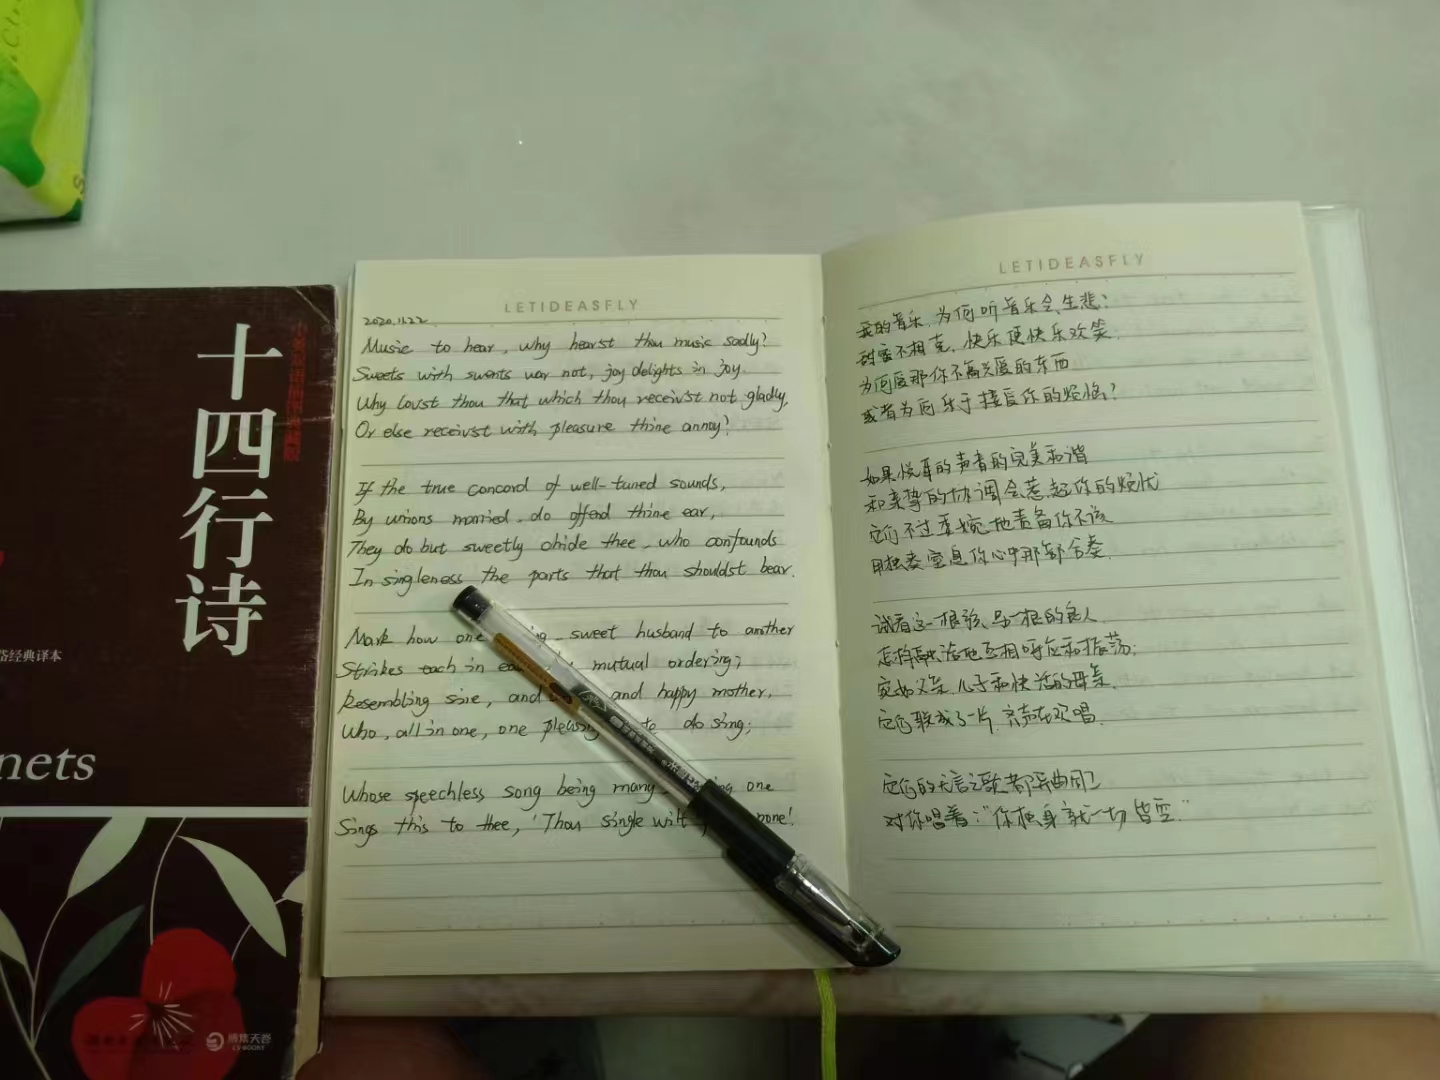 十四行诗
俗经典译本
nets
博集天卷
CS-BOOKY
LETIDEASFLY
2020.11.22
Music to hear, why hearst thou music sadly?
Sweets with sweets war not, joy delights in joy.
Why lovst thou that which thou receivst not gladly,
Or else receivst with pleasure thine annoy?
If the true concord of well-tuned sounds,
By unions married, do offend thine ear,
They do but sweetly chide thee, who confounds
In singleness the parts that thou shouldst bear.
Mark how one sweet husband to another
Strikes each in mutual ordering;
Resembling sire, and and happy mother,
Who, all in one, one pleasing do sing;
Whose speechless song being many, one
Sings this to thee, 'Thou single wilt none!'
LETIDEASFLY
我的音乐,为何听音乐会生悲?
甜蜜不相克,快乐使快乐欢笑.
为何爱那你不高兴爱的东西
或者为何乐于接受你的烦恼?
如果悦耳的声音的完美和谐
和亲挚的协调会惹起你的烦忧
它们不过委婉地责备你不该
用独奏窒息你心中那部合奏.
试看这一根弦,另一根的良人
怎样融洽地互相呼应和振荡;
宛如父亲,儿子和快活的母亲,
它们联成了一片,齐声在欢唱.
它们的无言之歌都异曲同工
对你唱着:"你独身就一切皆空."